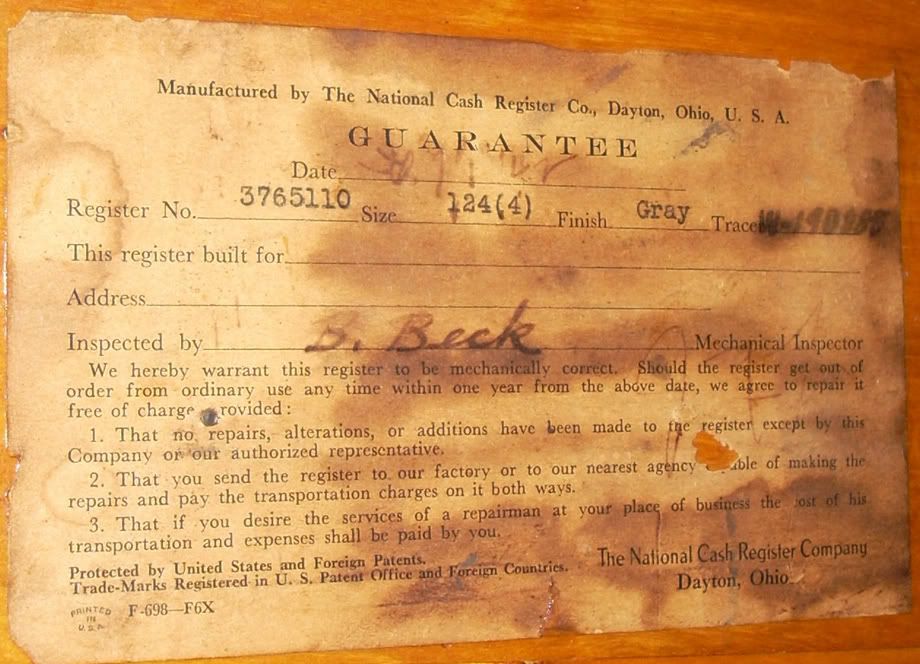 Manufactured by The National Cash Register Co., Dayton, Ohio, U. S. A.
GUARANTEE
Date
Register No. 3765110 Size 124(4) Finish Gray Trace
This register built for
Address
Inspected by B. Beck Mechanical Inspector
We hereby warrant this register to be mechanically correct. Should the register get out of
order from ordinary use any time within one year from the above date, we agree to repair it
free of charge rovided:
1. That no repairs, alterations, or additions have been made to the register except by this
Company or our authorized representative.
2. That you send the register to our factory or to our nearest agency able of making the
repairs and pay the transportation charges on it both ways.
3. That if you desire the services of a repairman at your place of business the cost of his
transportation and expenses shall be paid by you.
Protected by United States and Foreign Patents.
Trade-Marks Registered in U. S. Patent Office and Foreign Countries.
The National Cash Register Company
Dayton, Ohio.
PRINTED
IN
U.S.A.
F-698—F6X